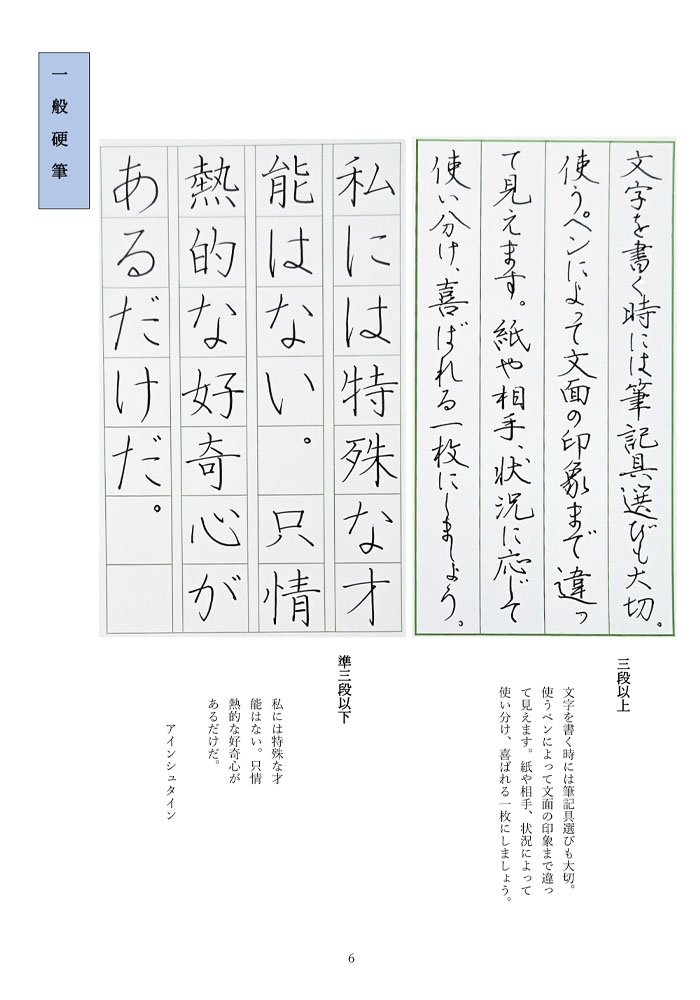 一般硬筆
文字を書く時には筆記具選びも大切。
使うペンによって文面の印象まで違っ
て見えます。紙や相手、状況に応じて
使い分け、喜ばれる一枚にしましょう。
私には特殊な才
能はない。只情
熱的な好奇心が
あるだけだ。
三段以上
文字を書く時には筆記具選びも大切。
使うペンによって文面の印象まで違っ
て見えます。紙や相手、状況によって
使い分け、喜ばれる一枚にしましょう。
準三段以下
私には特殊な才
能はない。只情
熱的な好奇心が
あるだけだ。
アインシュタイン
6